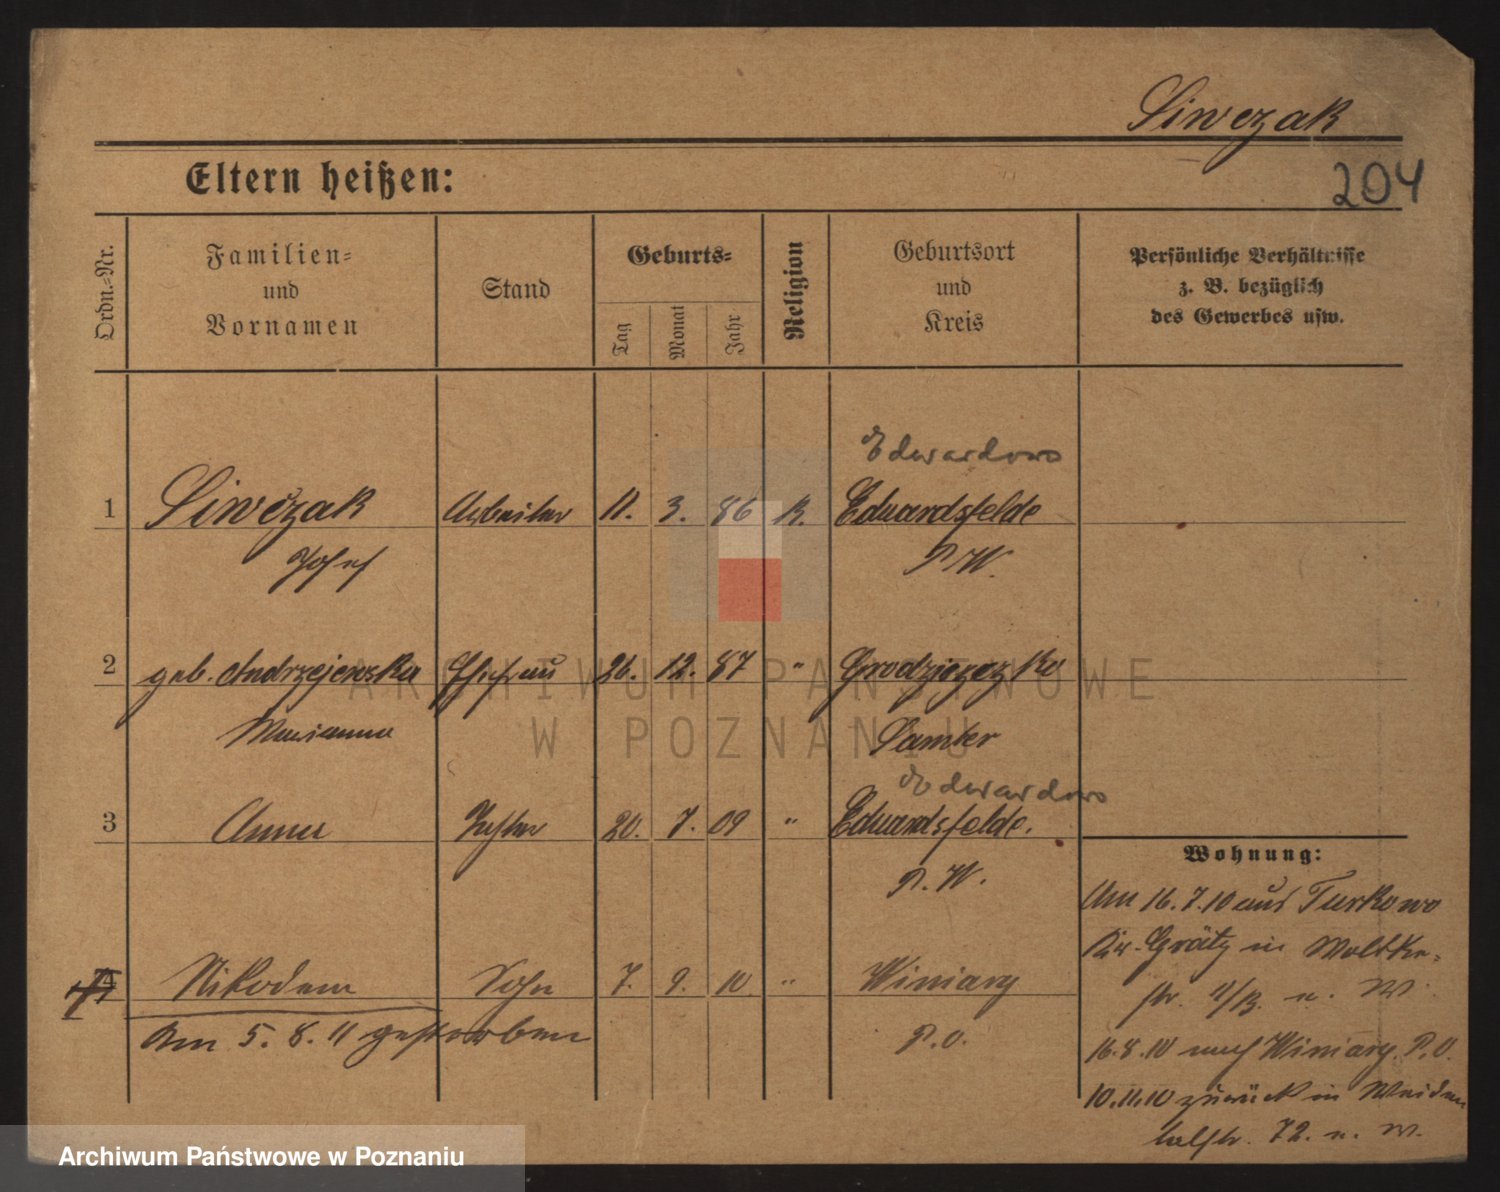 Siwczak
Eltern heißen:
204
Ordn.-Nr.
Familien-
und
Vornamen
Stand
Geburts-
Tag
Monat
Jahr
Religion
Geburtsort
und
Kreis
Persönliche Verhältnisse
z. B. bezüglich
des Gewerbes usw.
Edwardowo
1 Siwczak Arbeiter 11. 3. 86 K. Eduardsfelde
Josef P. W.
2 geb. Andrzejewska Ehefrau 26. 12. 87 "
Marianna Samter
Edwardowo
3 Anna Tochter 20. 7. 09 " Eduardsfelde.
P. W.
Wohnung:
4 Nikodem Sohn 7. 9. 10 " Winiary
Am 5. 8. 11 gestorben P. O.
Am 16. 7. 10 aus Turkowo
Kr. Grätz in Moltke-
str. u. W.
16.8.10 nach Winiary P. O.
10.11.10 zurück in
72. u. W.
ARCHIWUM PAŃSTWOWE
W POZNANIU
Archiwum Państwowe w Poznaniu